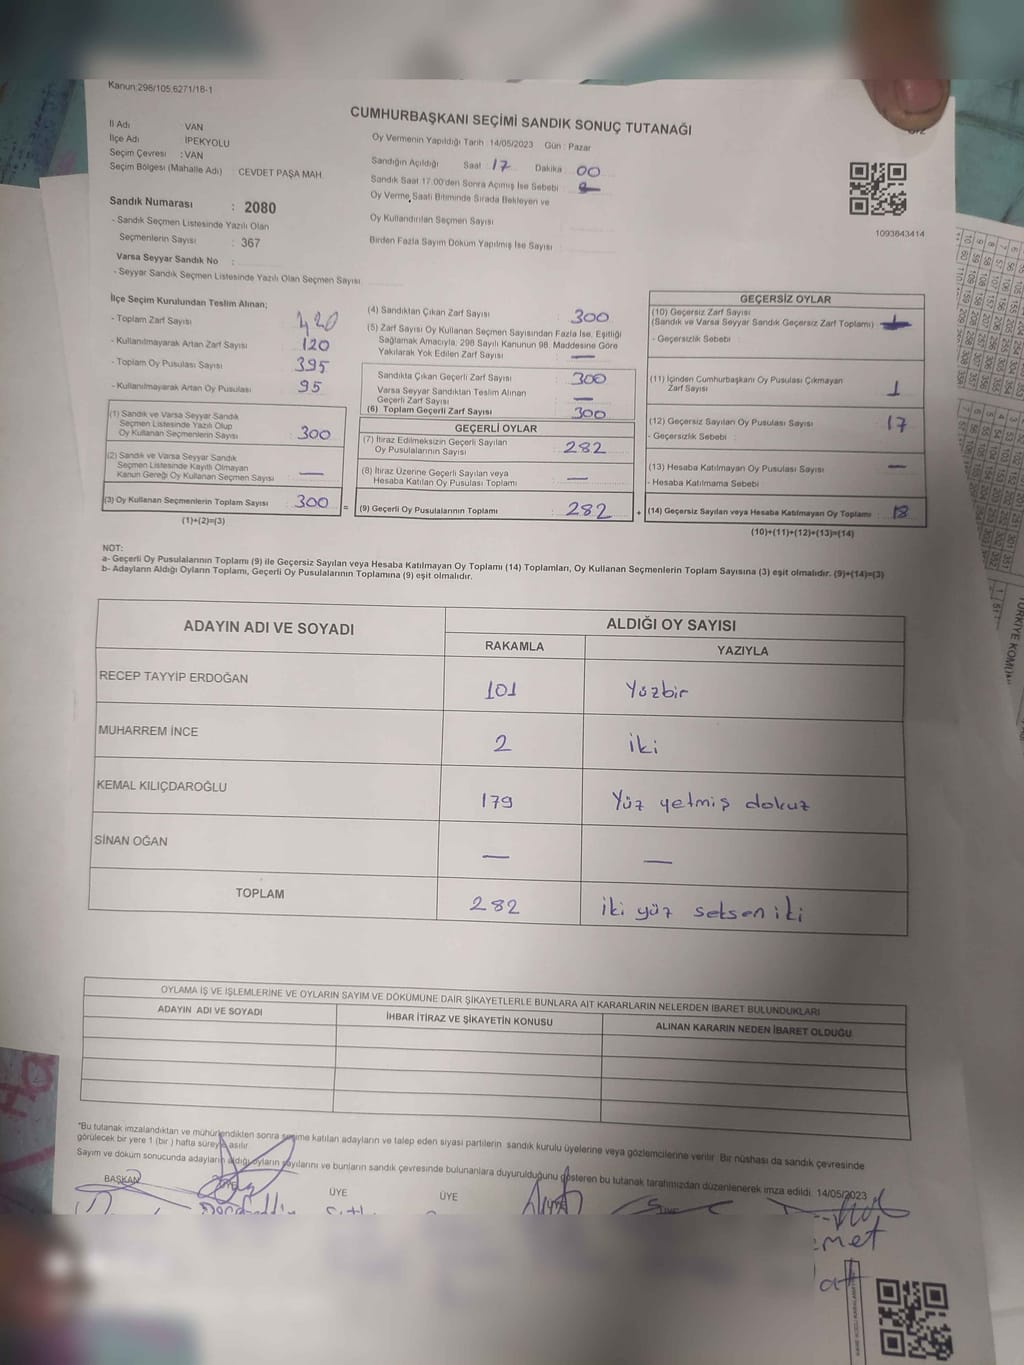 Kanun:298/105;6271/18-1
CUMHURBAŞKANI SEÇİMİ SANDIK SONUÇ TUTANAĞI
İl Adı VAN
İlçe Adı İPEKYOLU
Seçim Çevresi : VAN
Seçim Bölgesi (Mahalle Adı) : CEVDET PAŞA MAH.
Oy Vermenin Yapıldığı Tarih : 14/05/2023 Gün : Pazar
Sandığın Açıldığı Saat 17 Dakika 00
Sandık Saat 17.00'den Sonra Açımış İse Sebebi
Oy Verme Saati Bitiminde Sırada Bekleyen ve
Oy Kullandırılan Seçmen Sayısı
Birden Fazla Sayım Döküm Yapılmış İse Sayısı
1093843414
Sandık Numarası : 2080
- Sandık Seçmen Listesinde Yazılı Olan
Seçmenlerin Sayısı : 367
Varsa Seyyar Sandık No :
- Seyyar Sandık Seçmen Listesinde Yazılı Olan Seçmen Sayısı
İlçe Seçim Kurulundan Teslim Alınan;
- Toplam Zarf Sayısı 420
- Kullanılmayarak Artan Zarf Sayısı 120
- Toplam Oy Pusulası Sayısı 395
- Kullanılmayarak Artan Oy Pusulası 95
(1) Sandık ve Varsa Seyyar Sandık
Seçmen Listesinde Yazılı Olup
Oy Kullanan Seçmenlerin Sayısı : 300
(2) Sandık ve Varsa Seyyar Sandık
Seçmen Listesinde Kayıtlı Olmayan
Kanun Gereği Oy Kullanan Seçmen Sayısı —
(3) Oy Kullanan Seçmenlerin Toplam Sayısı : 300
(1)+(2)=(3)
(4) Sandıktan Çıkan Zarf Sayısı 300
(5) Zarf Sayısı Oy Kullanan Seçmen Sayısından Fazla İse, Eşitliği
Sağlamak Amacıyla, 298 Sayılı Kanunun 98. Maddesine Göre
Yakılarak Yok Edilen Zarf Sayısı : —
Sandıkta Çıkan Geçerli Zarf Sayısı : 300
Varsa Seyyar Sandıktan Teslim Alınan
Geçerli Zarf Sayısı : —
(6) Toplam Geçerli Zarf Sayısı : 300
GEÇERLİ OYLAR
(7) İtiraz Edilmeksizin Geçerli Sayılan
Oy Pusulalarının Sayısı : 282
(8) İtiraz Üzerine Geçerli Sayılan veya
Hesaba Katılan Oy Pusulası Toplamı : —
(9) Geçerli Oy Pusulalarının Toplamı : 282
GEÇERSİZ OYLAR
(10) Geçersiz Zarf Sayısı
(Sandık ve Varsa Seyyar Sandık Geçersiz Zarf Toplamı) :
- Geçersizlik Sebebi :
(11) İçinden Cumhurbaşkanı Oy Pusulası Çıkmayan
Zarf Sayısı : 1
(12) Geçersiz Sayılan Oy Pusulası Sayısı : 17
- Geçersizlik Sebebi :
(13) Hesaba Katılmayan Oy Pusulası Sayısı : —
- Hesaba Katılmama Sebebi
(14) Geçersiz Sayılan veya Hesaba Katılmayan Oy Toplamı : 18
(10)+(11)+(12)+(13)=(14)
NOT:
a- Geçerli Oy Pusulalarının Toplamı (9) ile Geçersiz Sayılan veya Hesaba Katılmayan Oy Toplamı (14) Toplamları, Oy Kullanan Seçmenlerin Toplam Sayısına (3) eşit olmalıdır. (9)+(14)=(3)
b- Adayların Aldığı Oyların Toplamı, Geçerli Oy Pusulalarının Toplamına (9) eşit olmalıdır.
ADAYIN ADI VE SOYADI ALDIĞI OY SAYISI
RAKAMLA YAZIYLA
RECEP TAYYİP ERDOĞAN 101 Yüzbir
MUHARREM İNCE 2 iki
KEMAL KILIÇDAROĞLU 179 Yüz yetmiş dokuz
SİNAN OĞAN — —
TOPLAM 282 iki yüz seksen iki
OYLAMA İŞ VE İŞLEMLERİNE VE OYLARIN SAYIM VE DÖKÜMÜNE DAİR ŞİKAYETLERLE BUNLARA AİT KARARLARIN NELERDEN İBARET BULUNDUKLARI
ADAYIN ADI VE SOYADI İHBAR İTİRAZ VE ŞİKAYETİN KONUSU ALINAN KARARIN NEDEN İBARET OLDUĞU
*Bu tutanak imzalandıktan ve mühürlendikten sonra seçime katılan adayların ve talep eden siyasi partilerin sandık kurulu üyelerine veya gözlemcilerine verilir. Bir nüshası da sandık çevresinde
görülecek bir yere 1 (bir ) hafta süreyle asılır.
Sayım ve döküm sonucunda adayların aldığı oyların sayılarını ve bunların sandık çevresinde bulunanlara duyurulduğunu gösteren bu tutanak tarafımızdan düzenlenerek imza edildi. 14/05/2023
BAŞKAN ÜYE ÜYE ÜYE